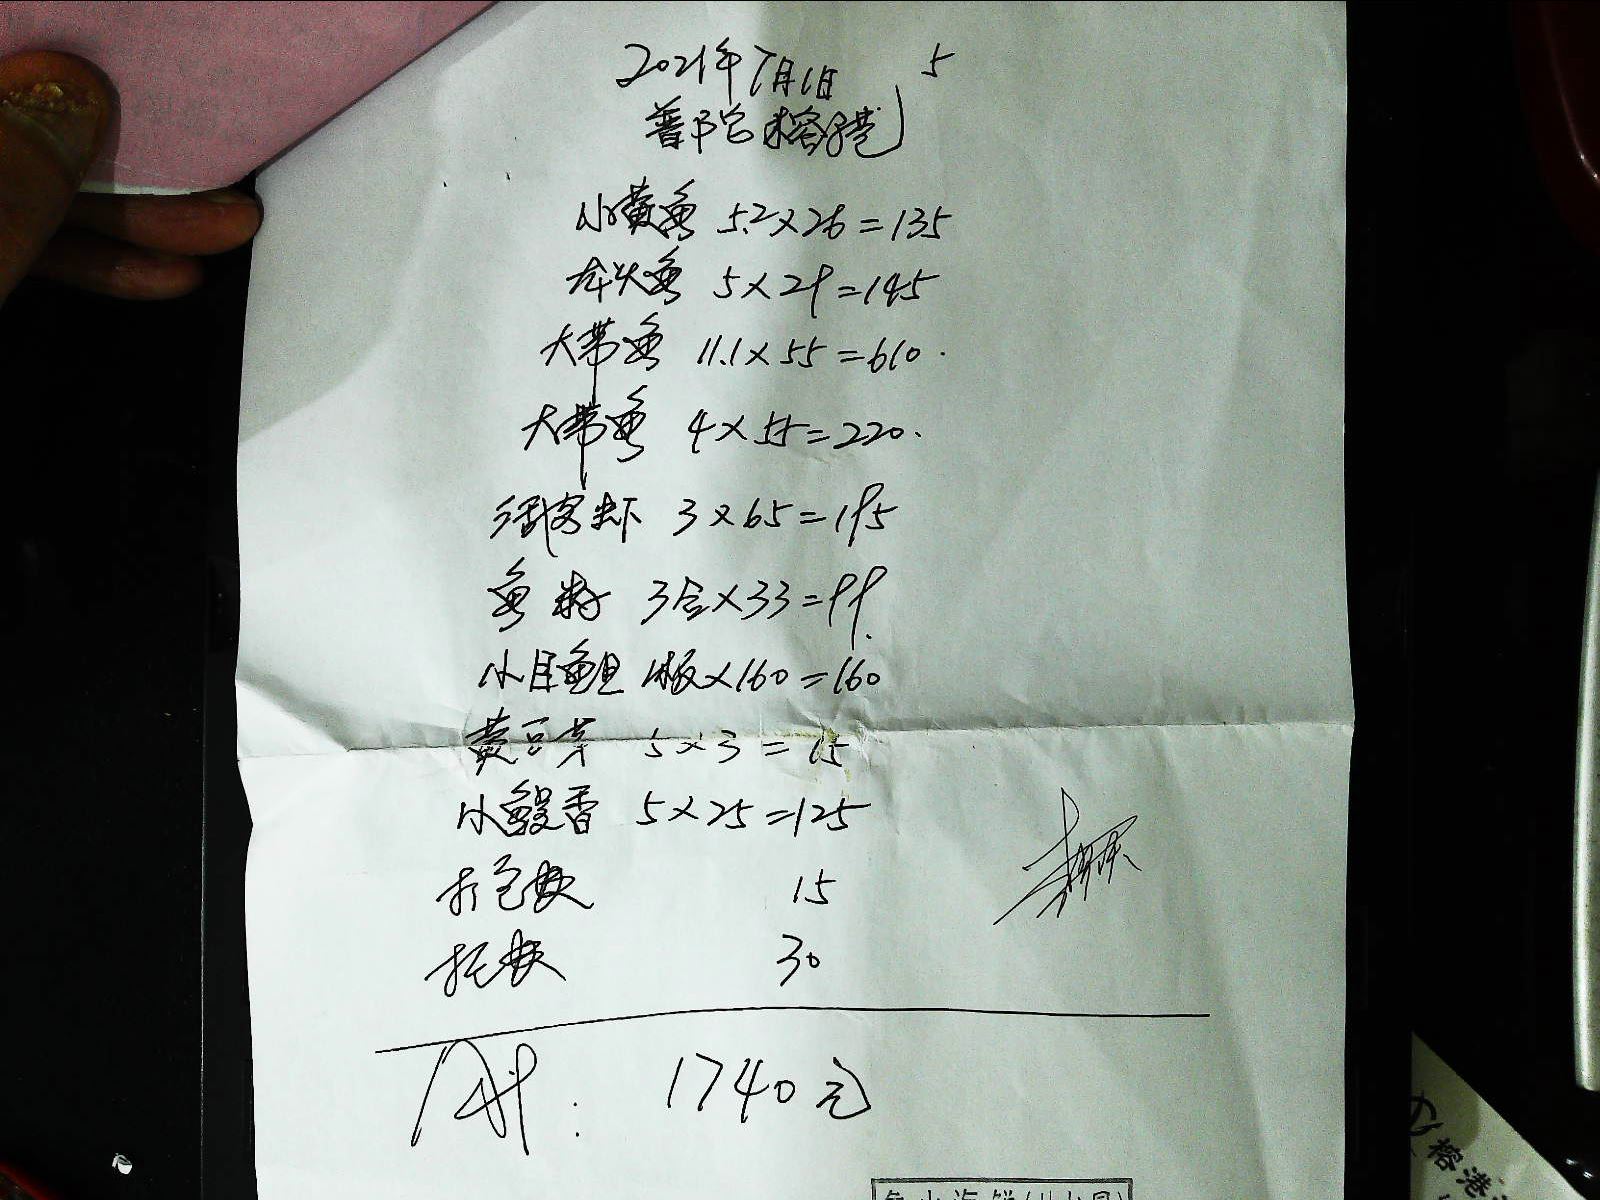 2021年7月1日 5
普陀榕港
小黄鱼 5.2×26=135
龙头鱼 5×29=145
大带鱼 11.1×55=610.
大带鱼 4×55=220.
活字虾 3×65=195
鱼籽 3合×33=99.
小目鱼旦 1板×160=160
黄豆芽 5×3=15
小鳗香 5×25=125
打包费 15
托费 30
合计: 1740元
榕港